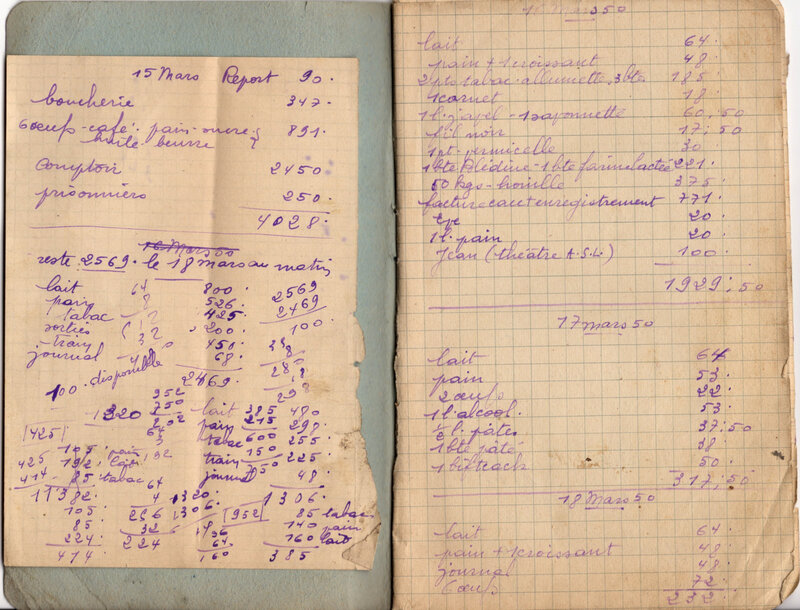 15 Mars Report 90.
boucherie 347.
6 oeufs-café. pain-sucre 891.
huile-beurre
comptoir 2450
prisonniers 250.
4028.
16 Mars 50
reste 2569. le 18 Mars au matin
lait 64 800. 2569
pain 526. 2469
tabac 425 100.
sorties 200.
train 450.
journal 68.
100. disponible 2469.
952
750
1320 202 lait 385 480
1425 pain 215 298
tabac 600 255
105, pain train 150 225
425 192, café, 192
414 85. tabac journal 48.
11382. 64 1320. 1306.
105. 226 1306. 952 85 tabac
85 32 196 140 pain
224. 224 64. 160 lait
414 160 385
16 Mars 50
lait 64.
pain + 1 croissant 48.
2 pts tabac-allumette 3 btes 185.
1 carnet 18.
1 l. javel-1 savonnette 60;50
1 fil noir 17;50
1 pt-vermicelle 30
1 bte Blédine-1 bte farine lactée 221.
50 kgs-houille 375
facture cacet enregistrement 771.
20.
1 l. pain 20.
Jean (théâtre A.S.L.) 100.
1929;50
17 mars 50
lait 64
pain 53.
2 oeufs 22.
1 l. alcool. 53.
½ l. pâtes 37;50
1 bte pâté 38.
1 bifteack 50.
317;50
18 Mars 50
lait 64.
pain + 1 croissant 48.
journal 48.
6 oeufs 72.
232.